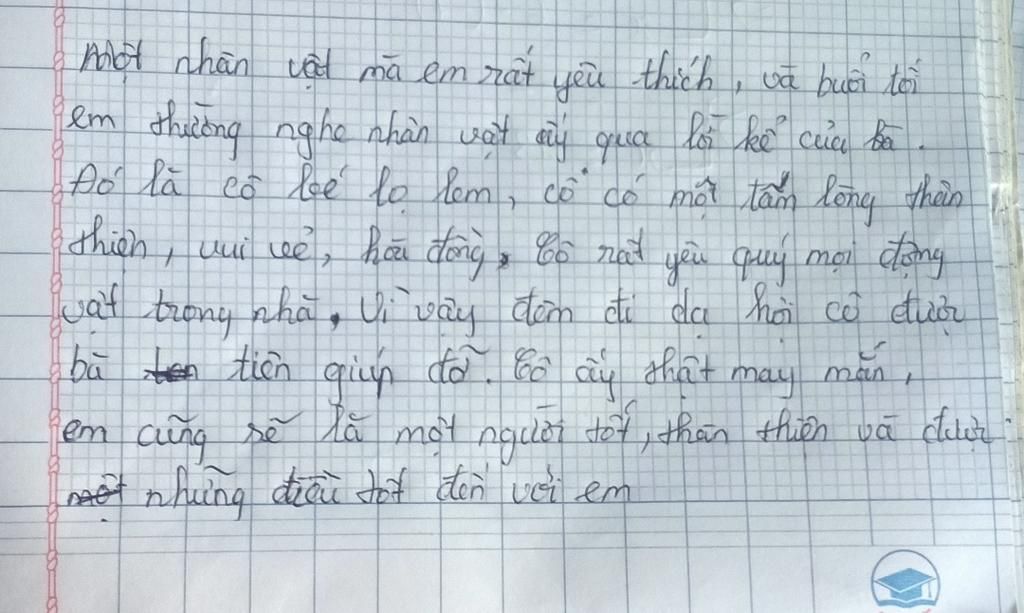 Một nhân vật mà em rất yêu thích, và buổi tối
em thường nghe nhân vật ấy qua lời kể của bà.
Đó là cô bé lọ lem, cô có một tấm lòng thân
thiện, vui vẻ, hòa đồng, Cô rất yêu quý mọi động
vật trong nhà, Vì vậy đêm đi dạ hội cô được
bà tiên giúp đỡ. Cô ấy thật may mắn,
em cũng sẽ là một người tốt, thân thiện và được
những điều tốt đến với em